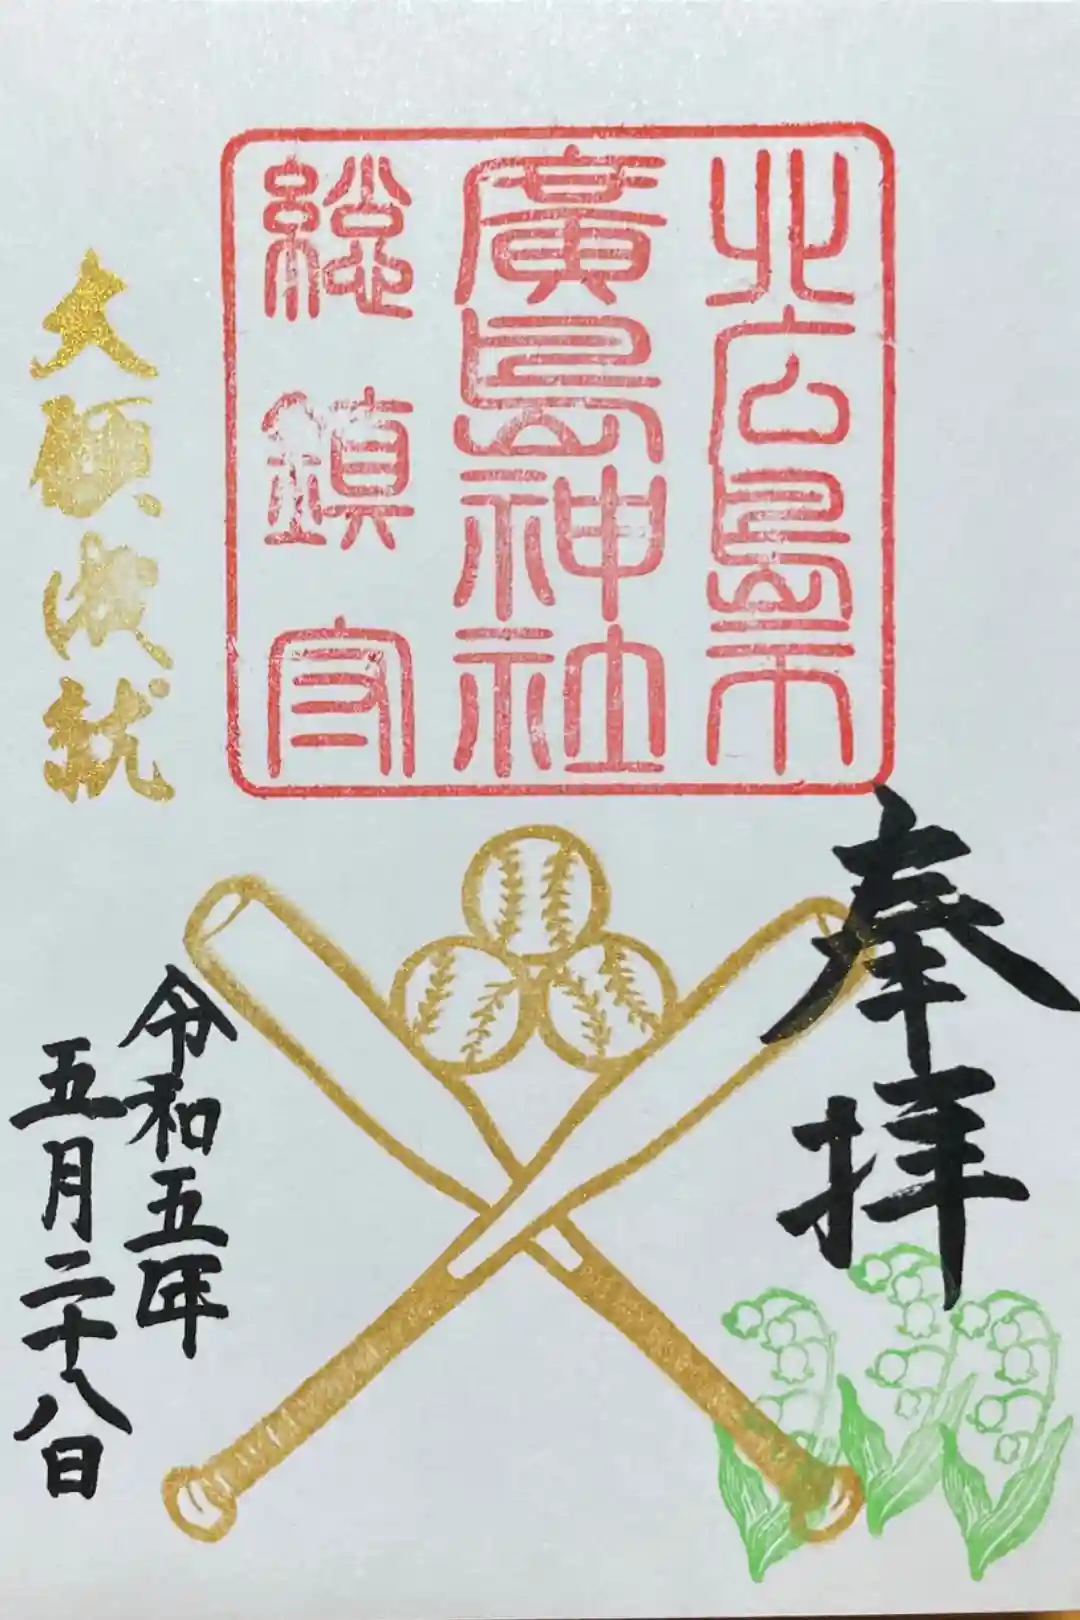 北広島市
廣島神社
総鎮守
奉拝
大願成就
令和五年
五月二十八日